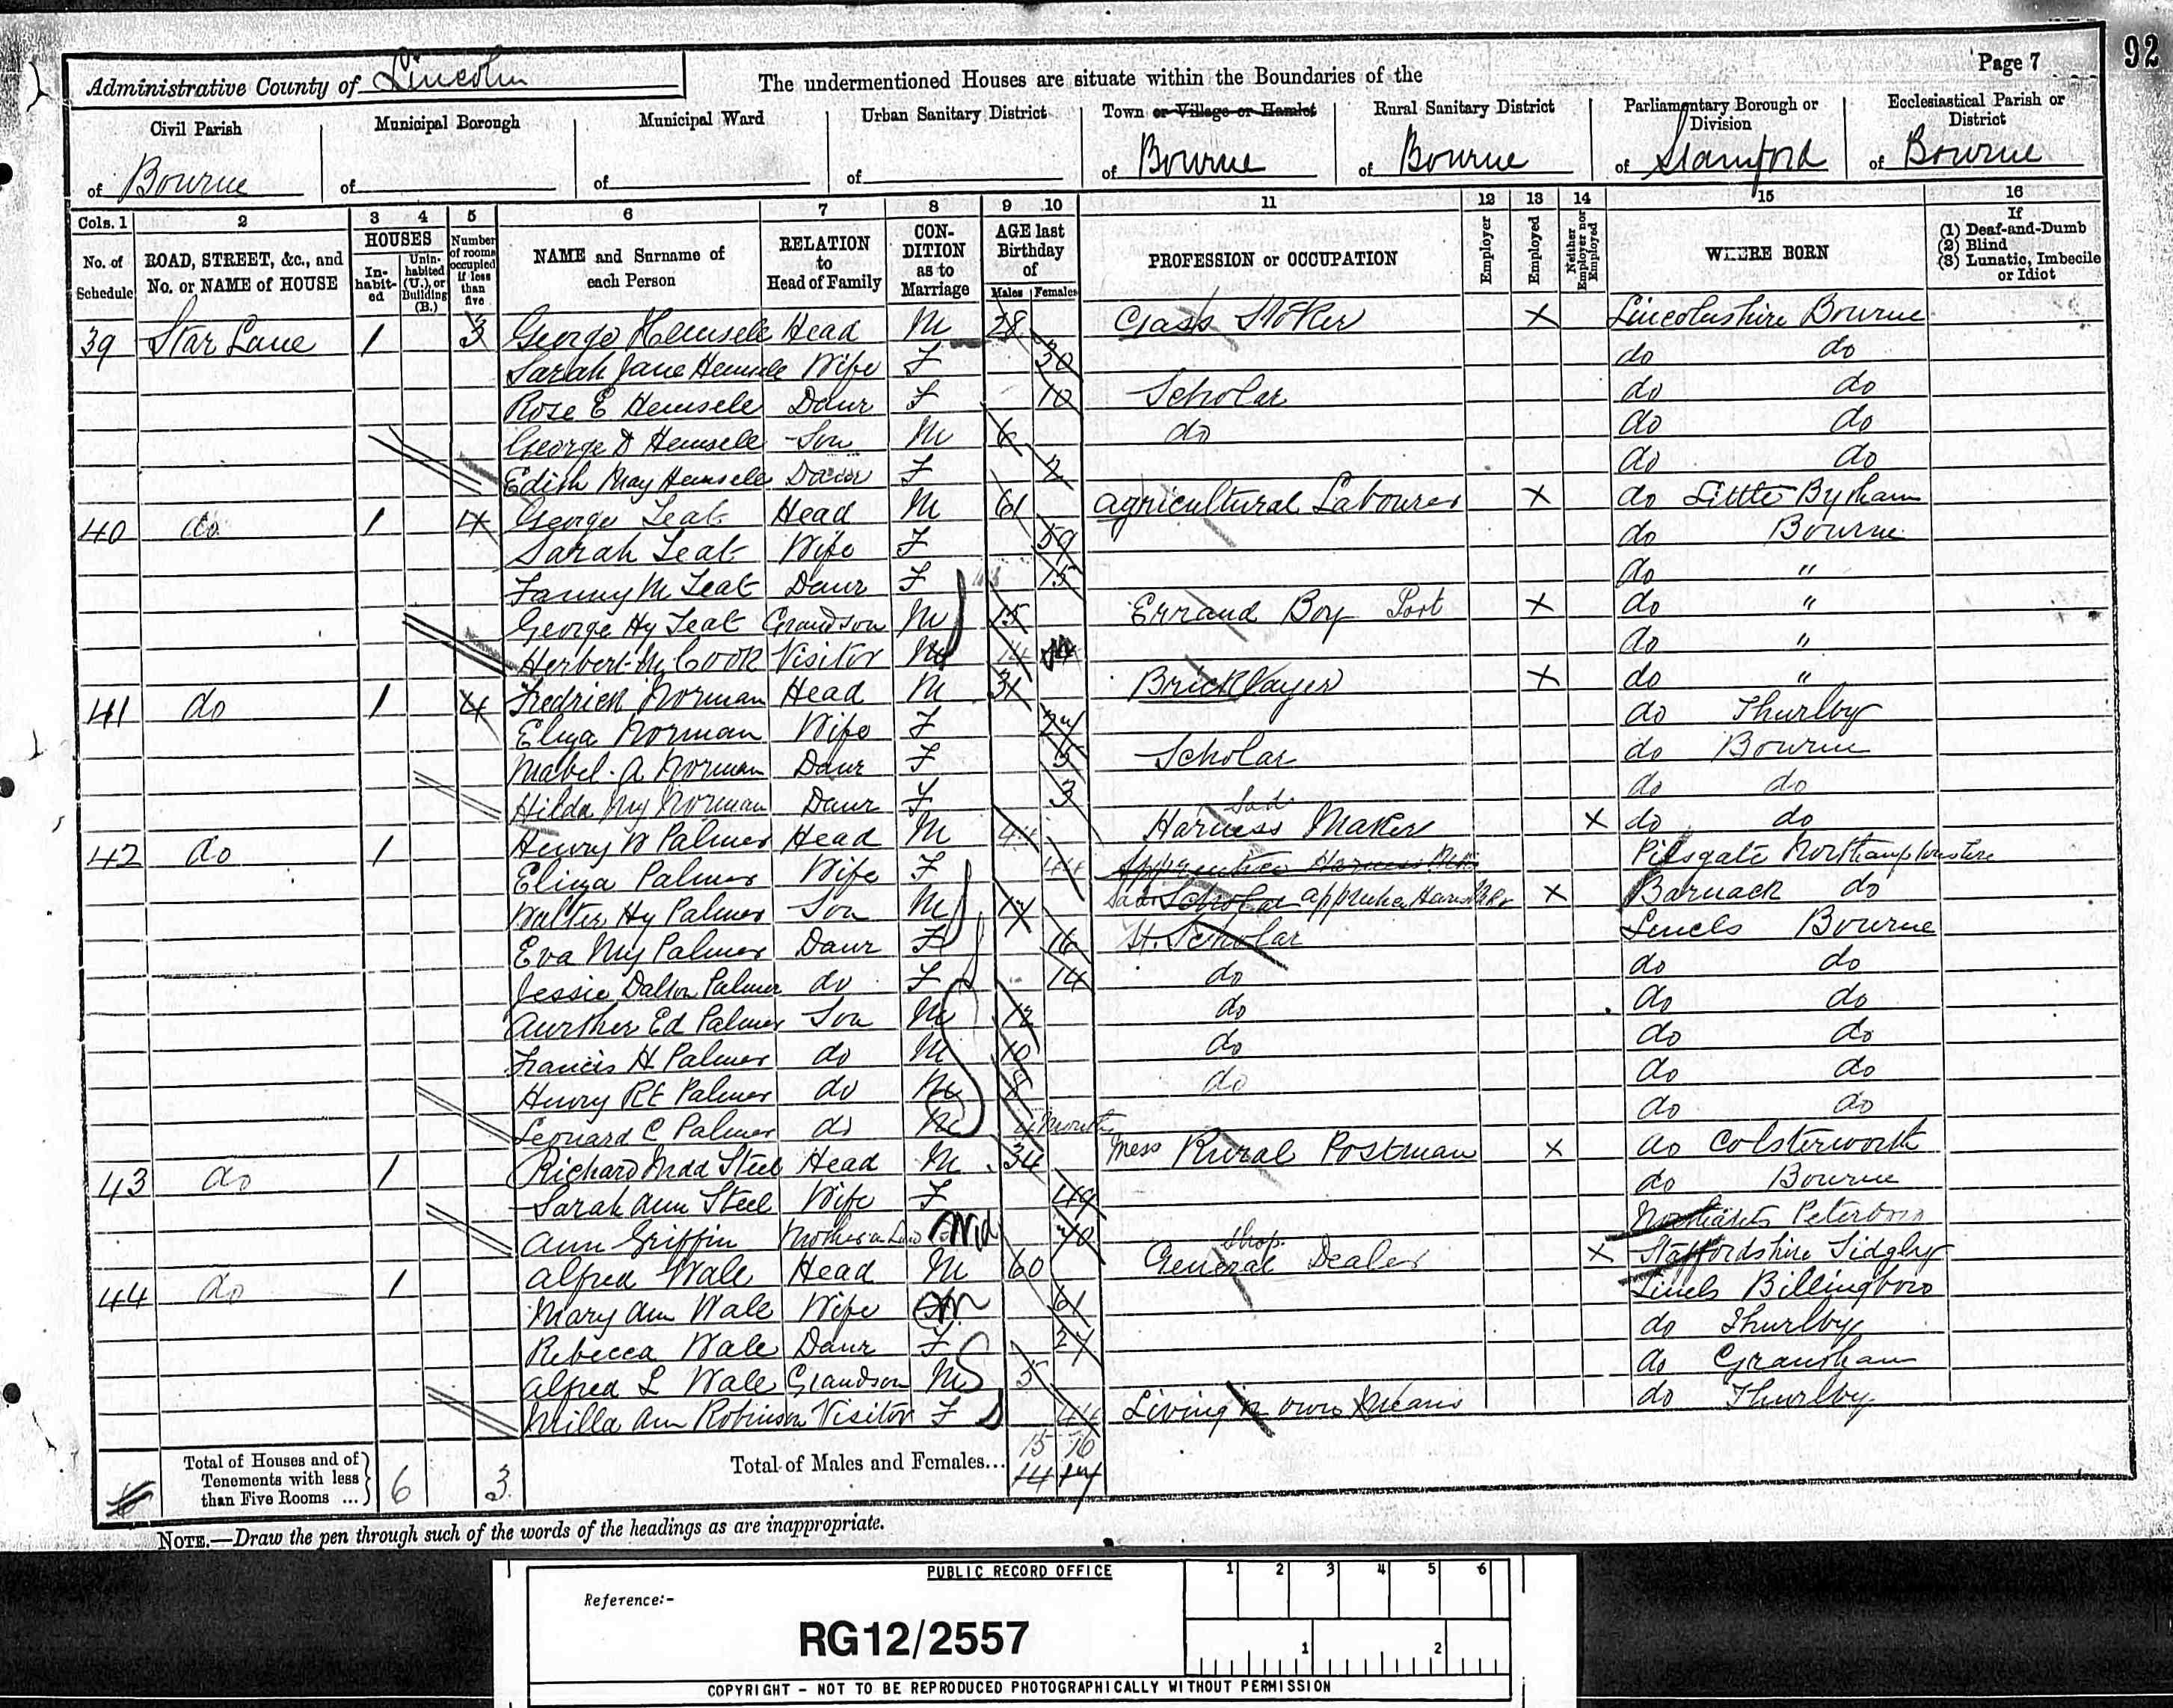 Page 7
92
Administrative County of Lincoln
The undermentioned Houses are situate within the Boundaries of the
Civil Parish
of Bourne
Municipal Borough
of
Municipal Ward
of
Urban Sanitary District
of
Town or Village or Hamlet
of Bourne
Rural Sanitary District
of Bourne
Parliamentary Borough or Division
of Stamford
Ecclesiastical Parish or District
of Bourne
Cols. 1 2 3 4 5 6 7 8 9 10 11 12 13 14 15 16
No. of Schedule
ROAD, STREET, &c., and No. or NAME of HOUSE
HOUSES
In-habit-ed
Unin-habited (U.), or Building (B.)
Number of rooms occupied if less than five
NAME and Surname of each Person
RELATION to Head of Family
CON-DITION as to Marriage
AGE last Birthday of
Males Females
PROFESSION or OCCUPATION
Employer
Employed
Neither Employer nor Employed
WHERE BORN
If
(1) Deaf-and-Dumb
(2) Blind
(3) Lunatic, Imbecile or Idiot
39 Star Lane 1 3 George Hemsele Head M 28 Gass Stoker X Lincolnshire Bourne
Sarah Jane Hemsele Wife F 30 do do
Rose E Hemsele Daur F 10 Scholar do do
George D Hemsele Son M 6 do do do
Edith May Hemsele Daur F 2 do do
40 do 1 4 George Leat Head M 61 Agricultural Labourer X do Little Bytham
Sarah Leat Wife F 59 do Bourne
Fanny M Leat Daur F 15 do "
George Hy Leat Grandson M 15 Errand Boy Port X do "
Herbert Cook Visitor M 14 do "
41 do 1 4 Fredrick Norman Head M 31 Bricklayer X do "
Eliza Norman Wife F 27 do Thurlby
Mabel A Norman Daur F 5 Scholar do Bourne
Hilda My Norman Daur F 3 do do
42 do 1 Henry W Palmer Head M 44 Sad Harness Maker X do do
Eliza Palmer Wife F 44 Apprentice Harness Pilsgate Northamptonshire
Walter Hy Palmer Son M 17 Sad Scholar X Barnack do
Eva My Palmer Daur F 16 Scholar Lincls Bourne
Jessie Dalton Palmer do F 14 do do do
Aurther Ed Palmer Son M 12 do do do
Francis H Palmer do M 10 do do do
Henry Palmer do M 8 do do do
Leonard C Palmer do M Months do do
43 do 1 Richard Steel Head M 34 Mess Rural Postman X do Colsterworth
Sarah Ann Steel Wife F 49 do Bourne
Ann Griffin Mother in Law Wid 70 Northants Peterboro
44 do 1 Alfred Wale Head M 60 Shop General Dealer X Staffordshire Sidgley
Mary Ann Wale Wife M 61 Lincls Billingboro
Rebecca Wale Daur F 27 do Thurlby
Alfred L Wale Grandson M S 5 do Grantham
Milla Ann Robinson Visitor F 44 Living on own Means do Thurlby
Total of Houses and of Tenements with less than Five Rooms ... 6 3
Total of Males and Females... 15 16
14 17
NOTE.—Draw the pen through such of the words of the headings as are inappropriate.
PUBLIC RECORD OFFICE
Reference:-
RG12/2557
1 2 3 4 5 6
1 2
COPYRIGHT - NOT TO BE REPRODUCED PHOTOGRAPHICALLY WITHOUT PERMISSION